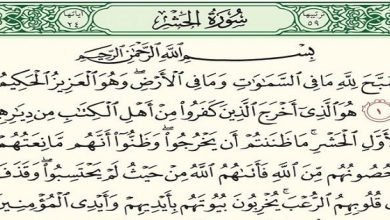 ترتيبها ٥٩ سُورَةُ الحَشْرِ آياتها ٢٤
بِسْمِ اللَّهِ الرَّحْمَٰنِ الرَّحِيمِ
سَبَّحَ لِلَّهِ مَا فِي السَّمَاوَاتِ وَمَا فِي الْأَرْضِ ۖ وَهُوَ الْعَزِيزُ الْحَكِيمُ
١ هُوَ الَّذِي أَخْرَجَ الَّذِينَ كَفَرُوا مِنْ أَهْلِ الْكِتَابِ مِن دِيَارِهِمْ
لِأَوَّلِ الْحَشْرِ ۚ مَا ظَنَنتُمْ أَن يَخْرُجُوا ۖ وَظَنُّوا أَنَّهُم مَّانِعَتُهُمْ
حُصُونُهُم مِّنَ اللَّهِ فَأَتَاهُمُ اللَّهُ مِنْ حَيْثُ لَمْ يَحْتَسِبُوا ۖ وَقَذَفَ
قُلُوبِهِمُ الرُّعْبَ ۚ يُخْرِبُونَ بُيُوتَهُم بِأَيْدِيهِمْ وَأَيْدِي الْمُؤْمِنِينَ